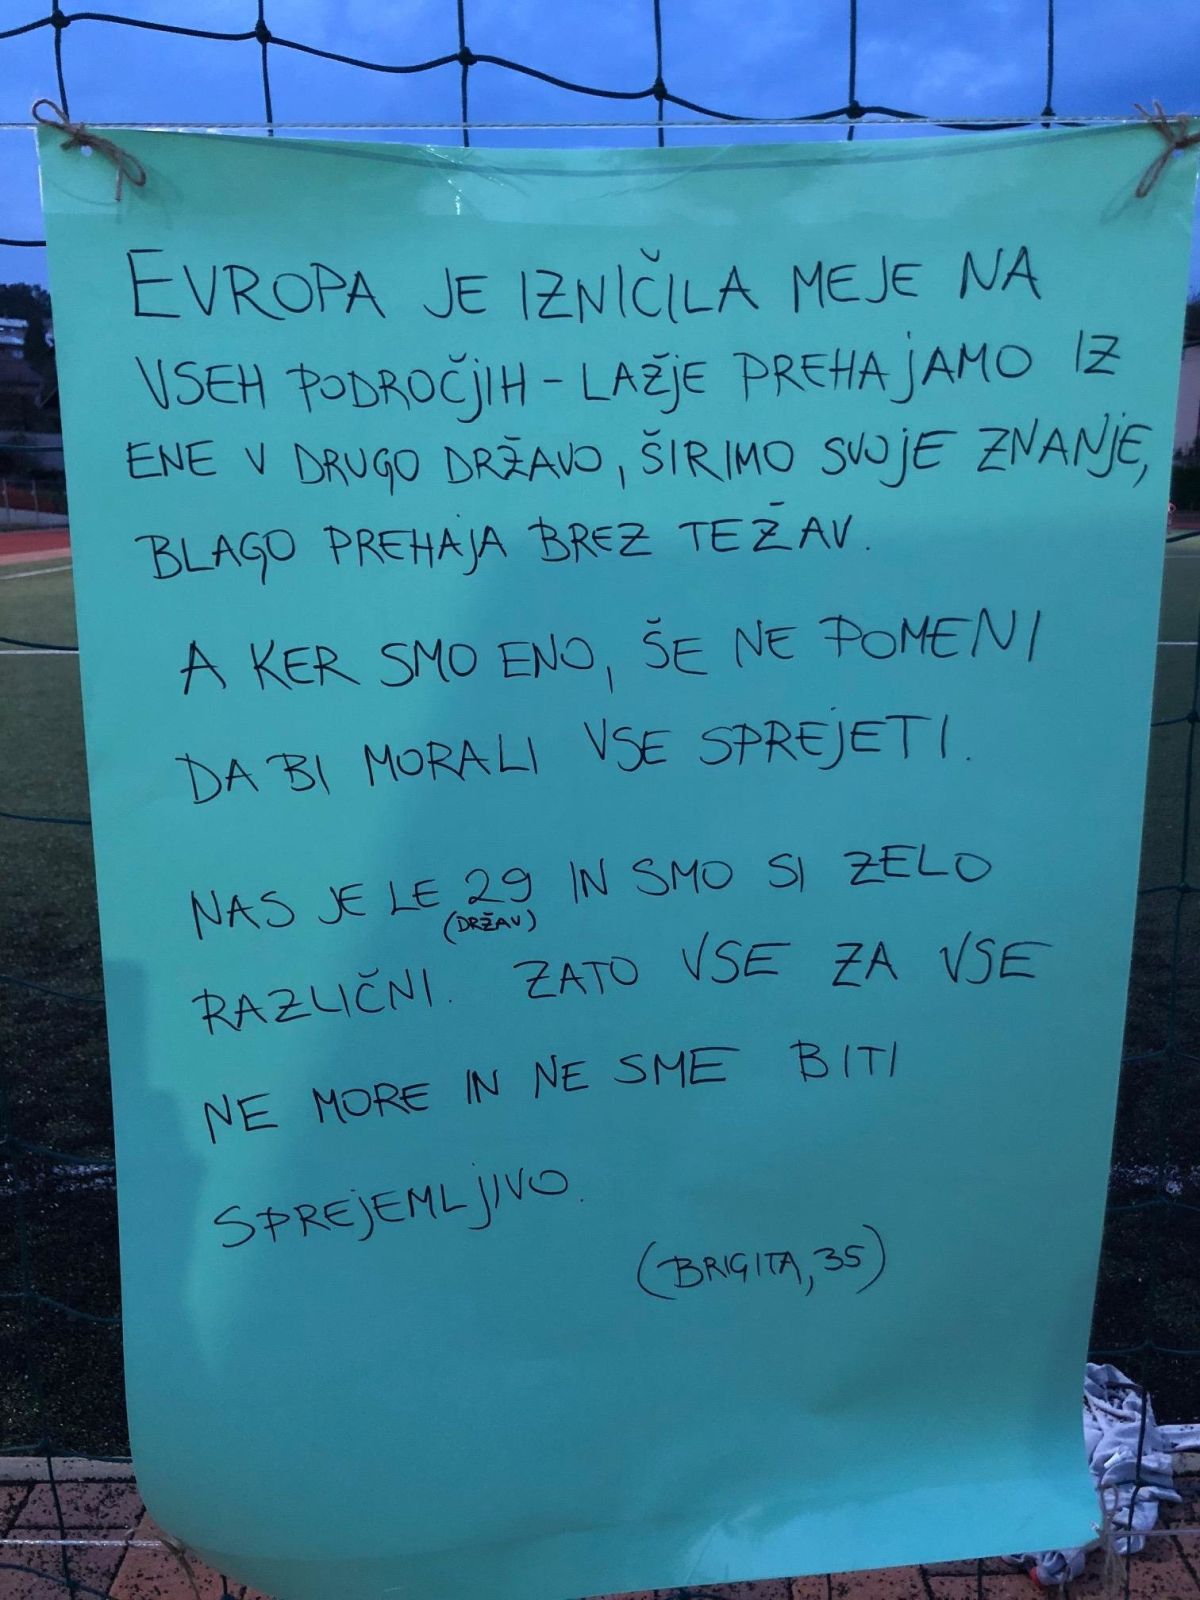 EVROPA JE IZNIČILA MEJE NA
VSEH PODROČJIH - LAŽJE PREHAJAMO IZ
ENE V DRUGO DRŽAVO, ŠIRIMO SVOJE ZNANJE,
BLAGO PREHAJA BREZ TEŽAV.
A KER SMO ENO, ŠE NE POMENI
DA BI MORALI VSE SPREJETI.
NAS JE LE 29 IN SMO SI ZELO
(DRŽAV)
RAZLIČNI. ZATO VSE ZA VSE
NE MORE IN NE SME BITI
SPREJEMLJIVO.
(BRIGITA, 35)